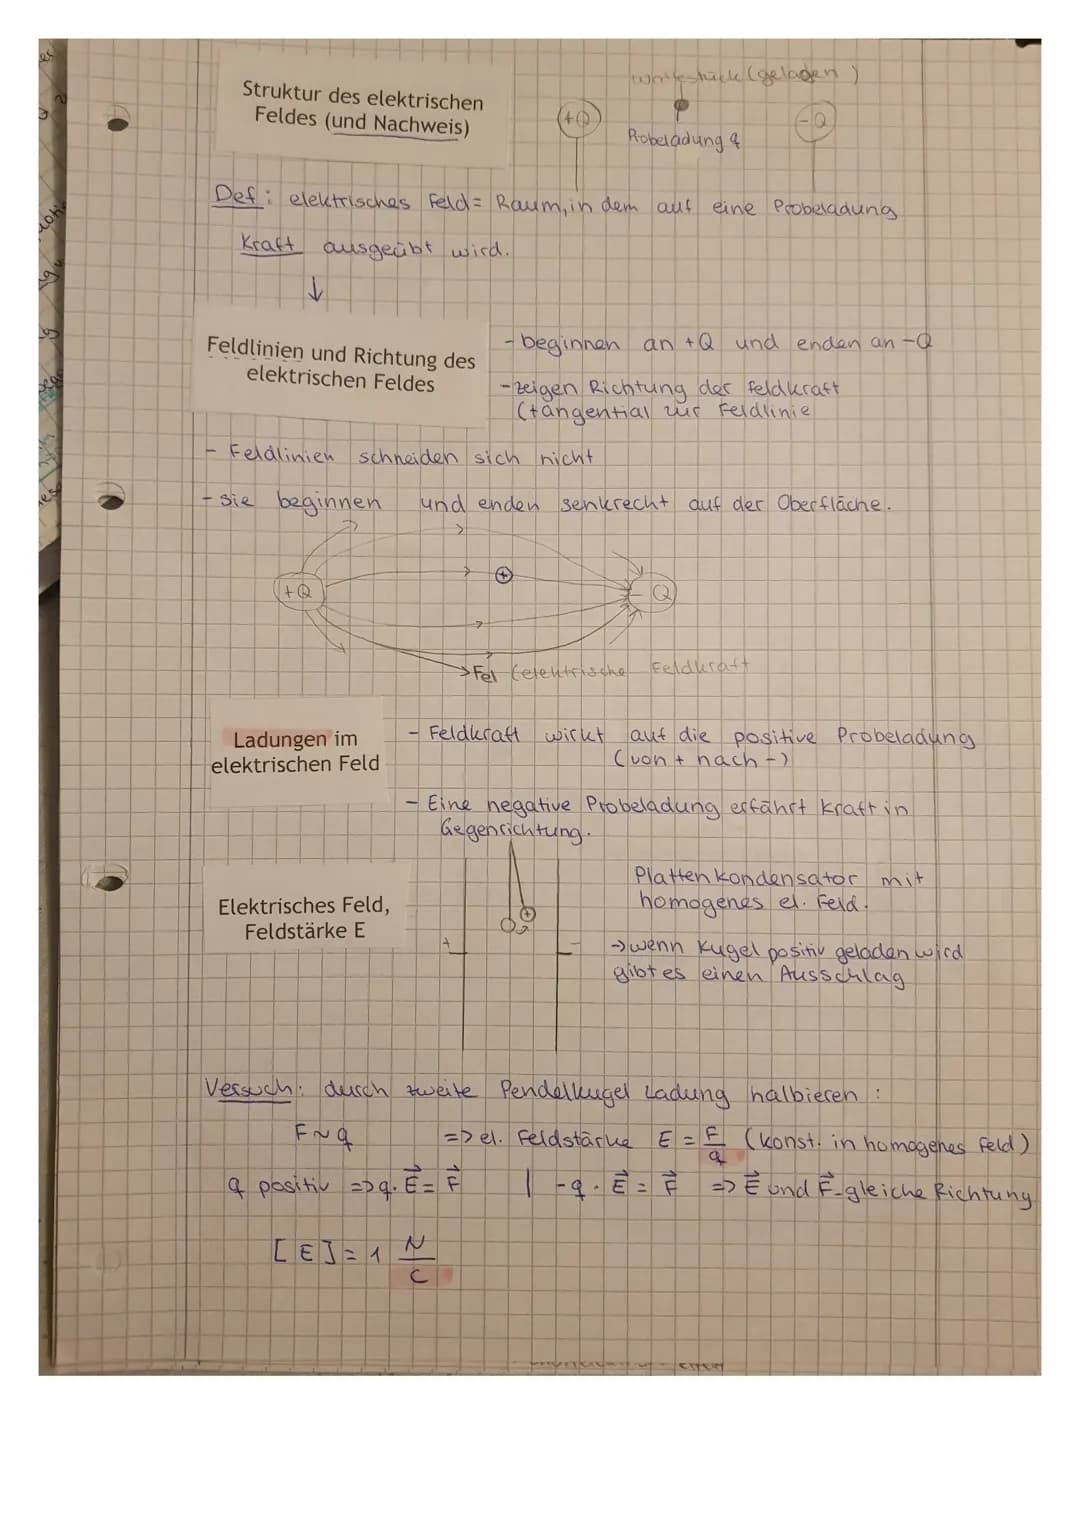 Struktur des elektrischen
Feldes (und Nachweis)
(geladen)
+Q
-Q
Probeladung q
Def: elektrisches Feld = Raum, in dem auf eine Probeladung
Kraft ausgeübt wird.
↓
Feldlinien und Richtung des
elektrischen Feldes
- beginnen an +Q und enden an -Q
- zeigen Richtung der Feldkraft
(tangential zur Feldlinie
- Feldlinien schneiden sich nicht
- sie beginnen und enden senkrecht auf der Oberfläche.
+Q
+
- Q
Fel (elektrische Feldkraft
Ladungen im
elektrischen Feld
- Feldkraft wirkt auf die positive Probeladung
(von + nach -)
- Eine negative Probeladung erfährt Kraft in
Gegenrichtung.
Elektrisches Feld,
Feldstärke E
+
+
-
Plattenkondensator mit
homogenes el. Feld.
→ wenn Kugel positiv geladen wird
gibt es einen Ausschlag
Versuch: durch zweite Pendelkugel Ladung halbieren :
F ~ q => el. Feldstärke E = F/q (konst. in homogenes Feld)
q positiv => q · E⃗ = F⃗ | -q · E⃗ = F⃗ => E⃗ und F⃗ - gleiche Richtung
[E] = 1 N/C